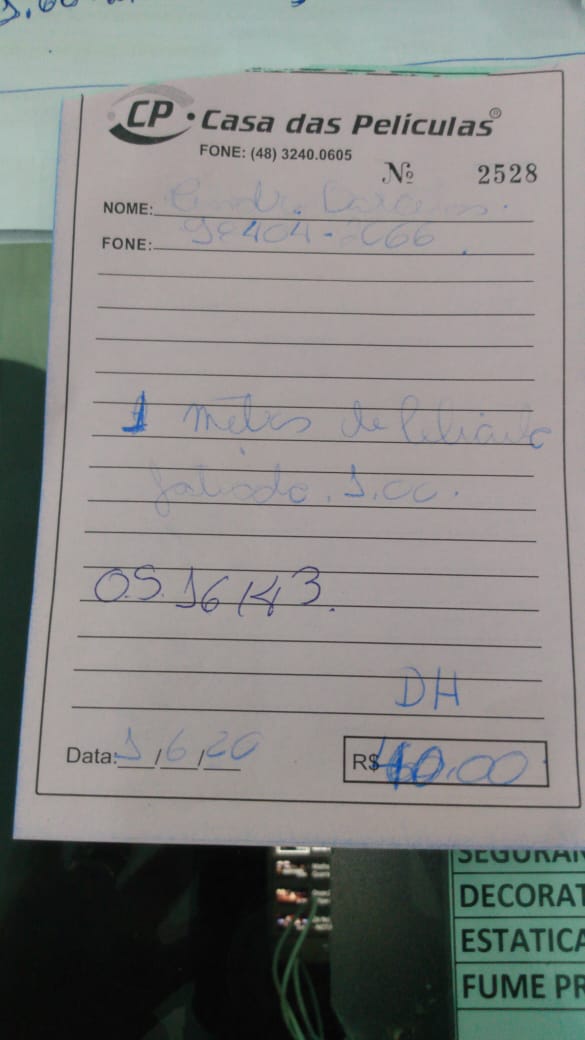 CP · Casa das Películas®
FONE: (48) 3240.0605
Nº 2528
NOME:
FONE:
1 metros de Pelicula
jateado. 1.00.
OS 16143.
DH
Data: 1/6/20
R$ 40,00
SEGURAN
DECORAT
ESTATICA
FUME PR